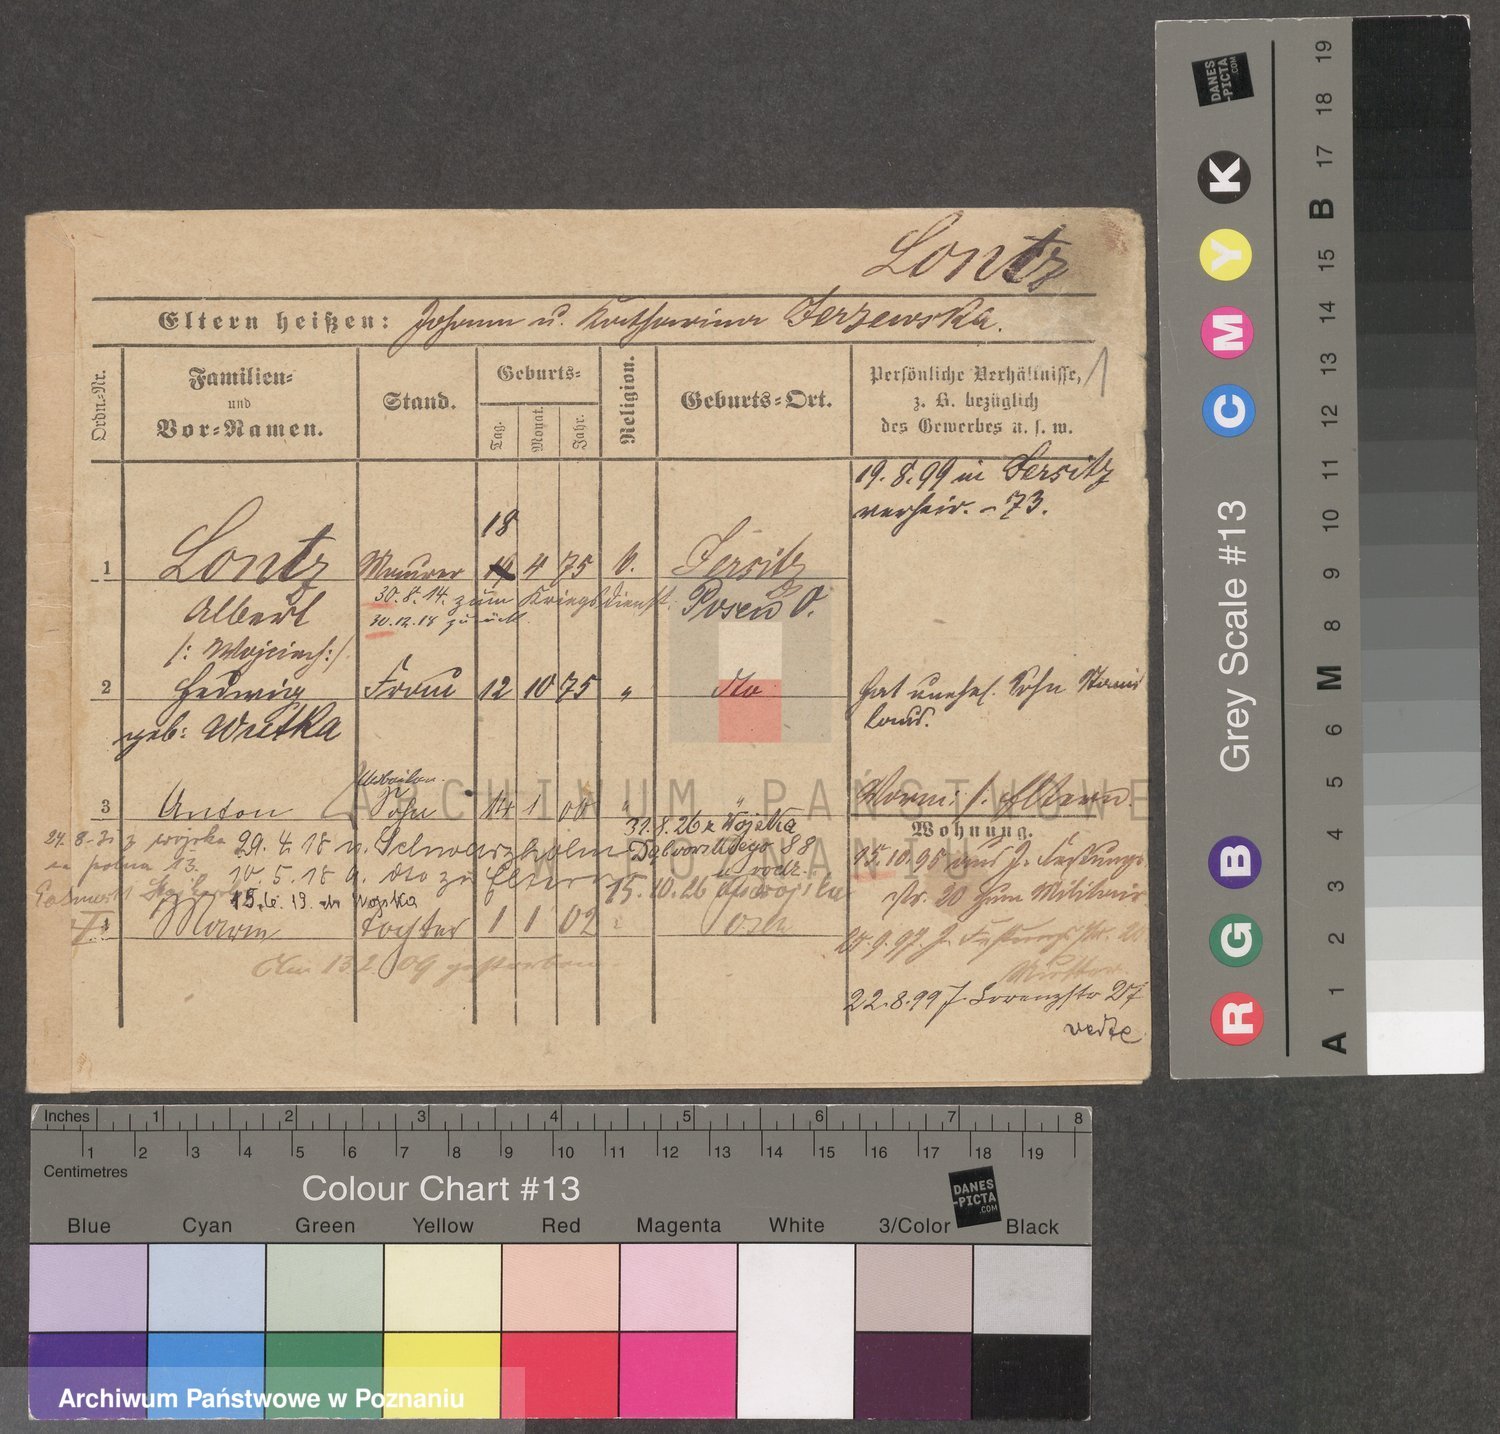 Lontz
Eltern heißen: Johann u. Katharina Jerzewska.
1
Ordn.-Nr.
Familien-
und
Vor-Namen.
Stand.
Geburts-
Tag.
Monat.
Jahr.
Religion.
Geburts-Ort.
Persönliche Verhältnisse,
z. B. bezüglich
des Gewerbes u. s. w.
19.8.99 in Jersitz
verheir. - 73.
18
1 Lontz Maurer 19 4 75 k. Jersitz
Albert 30.8.14. zum Kriegsdienst Posen O.
30.12.18 zurück
/: Wojciech :/
2 Hedwig Frau 12 10 75 " dto hat unehel. Sohn Stanis
laus.
geb: Wutka
3 Anton Sohn 14 1 00 "
31.8.26 z Wojska
Wohnung.
24.8.21 z wojska 29.4.18 n. Schwarzholm Dąbrowskiego 88
15.10.96 aus J. Festungs
10.5.18 v. dto zu Eltern 15.10.26 do wojska
str. 20 zum Militair
15.6.19. do Wojska
4 Marie Tochter 1 1 02 " Posen
Am 13 2 09 gestorben.
22.8.99 J. Lorenzstr 27
verte
ARCHIWUM PAŃSTWOWE
W POZNANIU
Inches 1 2 3 4 5 6 7 8
1 2 3 4 5 6 7 8 9 10 11 12 13 14 15 16 17 18 19
Centimetres
Colour Chart #13
DANES
-PICTA
.COM
Blue Cyan Green Yellow Red Magenta White 3/Color Black
Archiwum Państwowe w Poznaniu
Grey Scale #13
DANES
-PICTA
.COM
R G B C M Y K
A 1 2 3 4 5 6 M 8 9 10 11 12 13 14 15 B 17 18 19